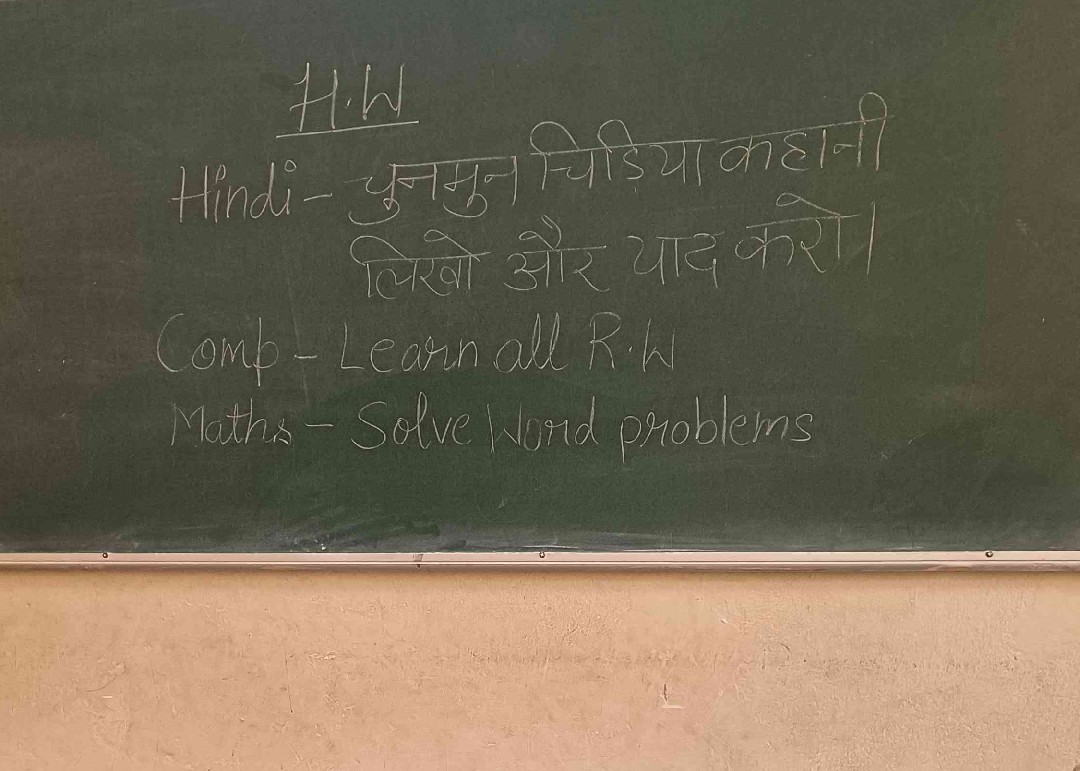 H.W
Hindi - चुनमुन चिड़िया कहानी
लिखो और याद करो।
Comp - Learn all R.W
Maths - Solve Word problems